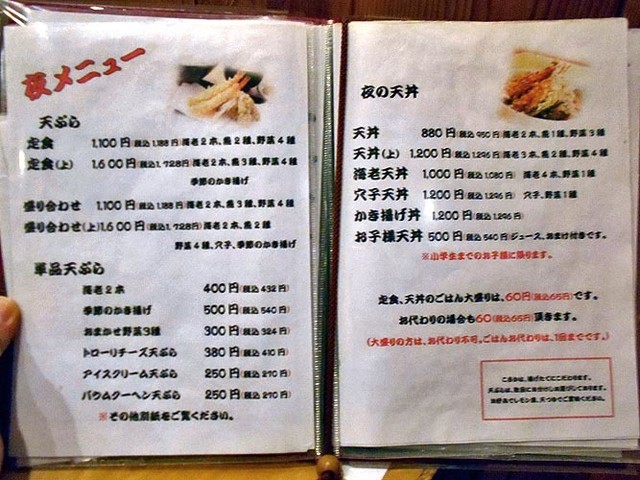 夜メニュー
天ぷら
定食 1,100円(税込1,188円)海老2本、魚2種、野菜4種
定食(上) 1,600円(税込1,728円)海老2本、魚3種、野菜4種
季節のかき揚げ
盛り合わせ 1,100円(税込1,188円)海老2本、魚3種、野菜4種
盛り合わせ(上)1,600円(税込1,728円)海老2本、魚2種
野菜4種、穴子、季節のかき揚げ
単品天ぷら
海老2本 400円(税込432円)
季節のかき揚げ 500円(税込540円)
おまかせ野菜3種 300円(税込324円)
トローリチーズ天ぷら 380円(税込410円)
アイスクリーム天ぷら 250円(税込270円)
バウムクーヘン天ぷら 250円(税込270円)
※その他別紙をご覧ください。
夜の天丼
天丼 880円(税込950円)海老2本、魚1種、野菜3種
天丼(上) 1,200円(税込1,296円)海老3本、魚2種、野菜4種
海老天丼 1,000円(税込1,080円) 海老4本、野菜1種
穴子天丼 1,200円(税込1,296円) 穴子、野菜1種
かき揚げ丼 1,200円(税込1,296円)
お子様天丼 500円(税込540円)ジュース、おまけ付きです。
※小学生までのお子様に限ります。
定食、天丼のごはん大盛りは、60円(税込65円)です。
お代わりの場合も60(税込65円)頂きます。
(大盛りの方は、お代わり不可。ごはんお代わりは、1回までです。)
ごま油は、揚げたてにこだわります。
天ぷらは、数回に分けてお運びしております。
お好みでレモン塩、天つゆでご賞味ください。